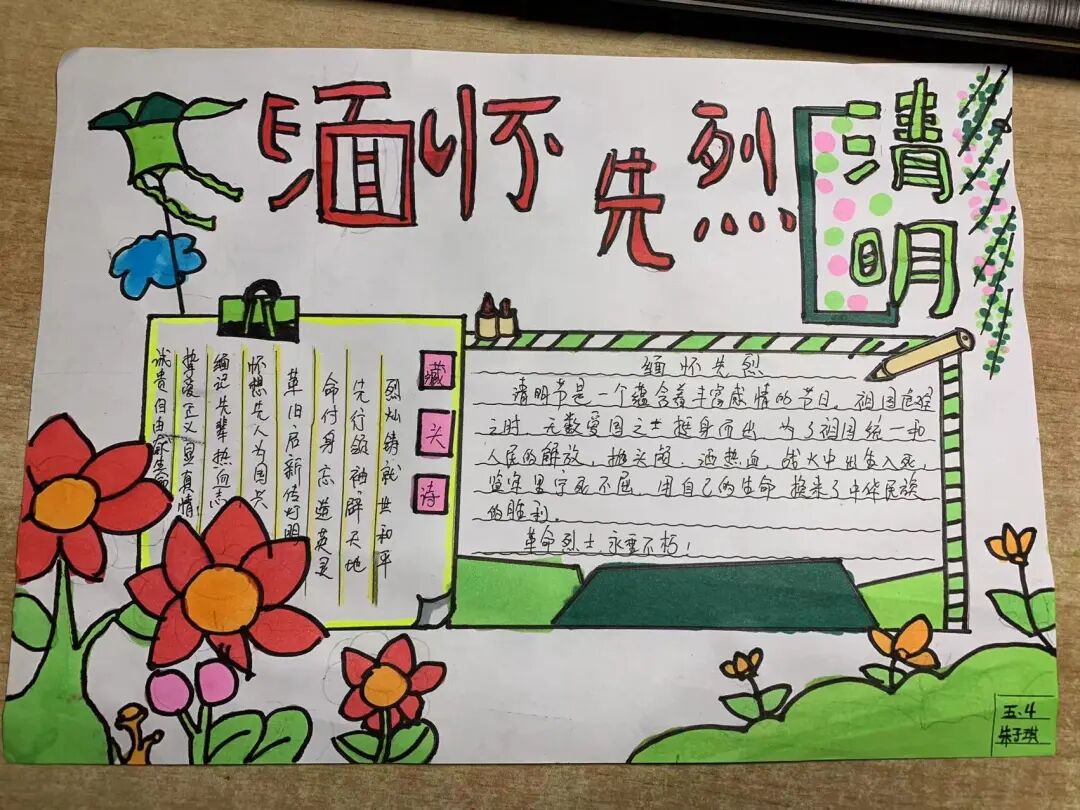 缅怀先烈
清明
藏头诗
烈灿铸就世和平
先行领袖辟天地
命付身忘造英灵
革旧启新传灯明
怀想先人为国兴
缅记先辈热向志
挚爱正义显真情
诚贵自由
缅怀先烈
清明节是一个蕴含着丰富感情的节日。祖国危难
之时，无数爱国之士挺身而出，为了祖国统一和
人民的解放，抛头颅、洒热血，战火中出生入死，
监牢里宁死不屈，用自己的生命换来了中华民族
的胜利。
革命烈士永垂不朽！
五.4
朱子琪